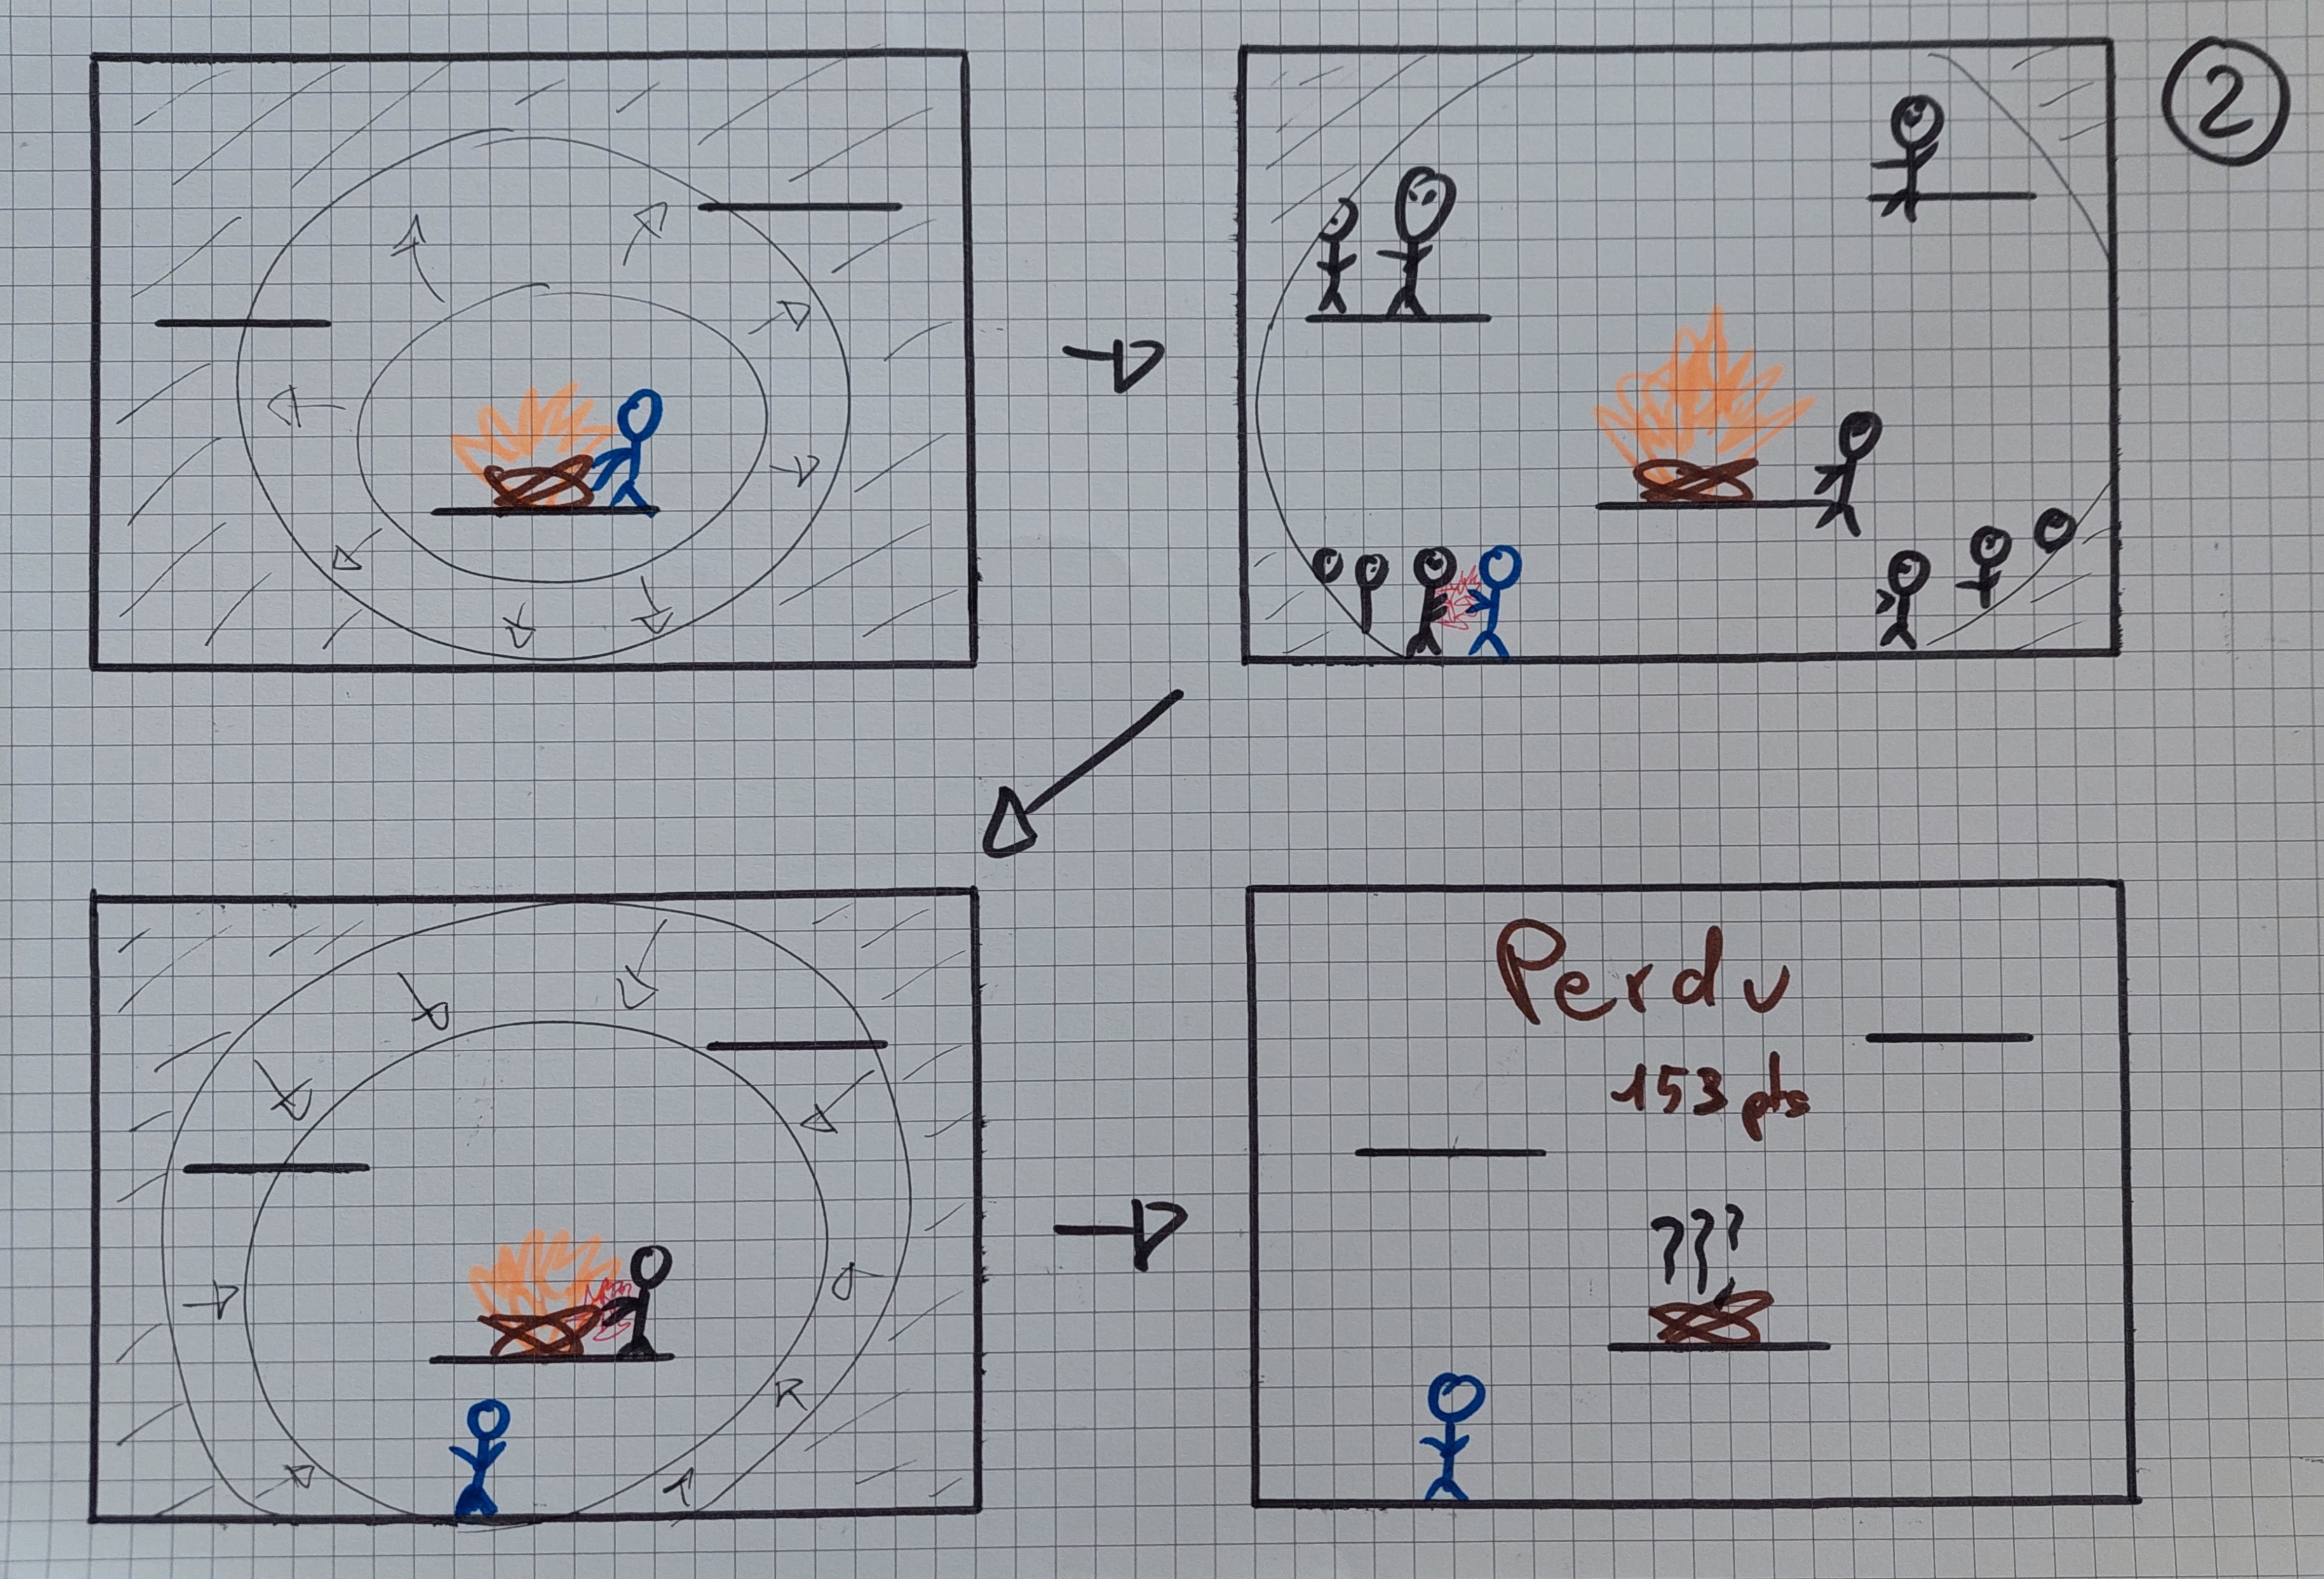 2
Perdu
153 pts
???